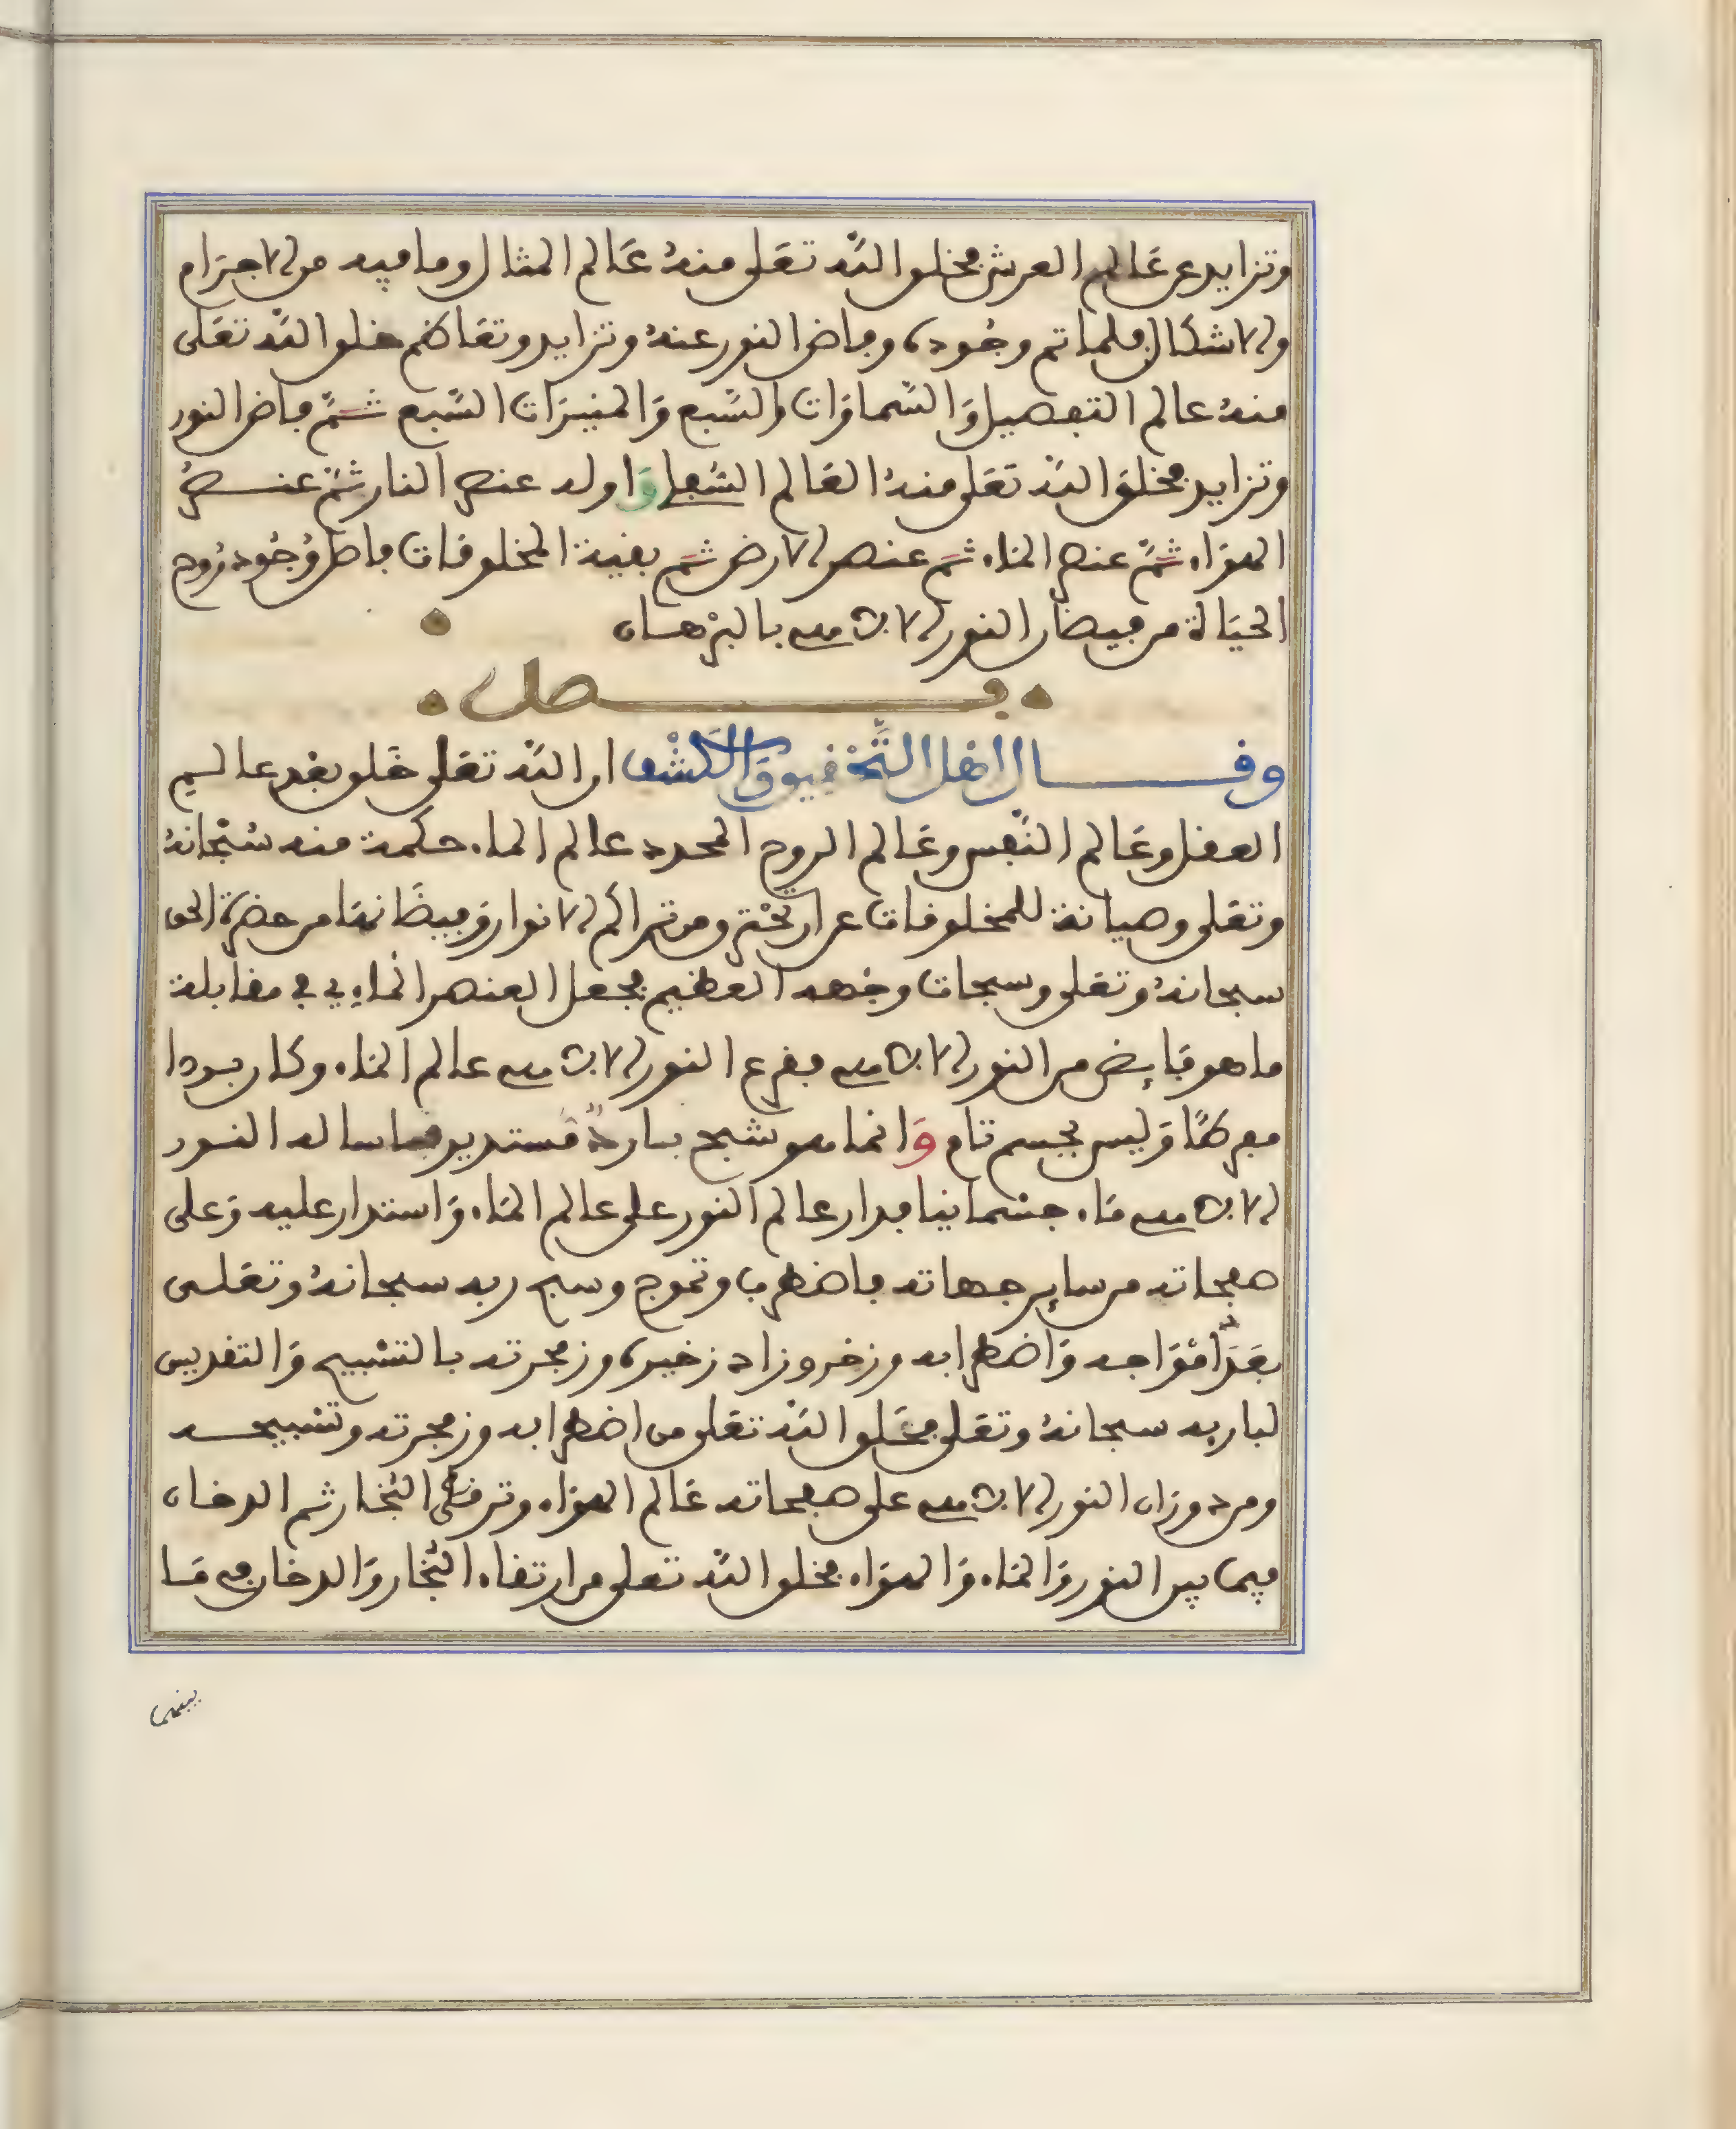 وتزايد عن عَالم العرش فخلق اللّه تعَلى منهُ عَالم المثال وما فيه من الاجرَام
والاشكال فلما تم وجُوده وفاض النور عنهُ وتزايد وتعَاظم خلق اللّه تعَلى
منهُ عالم التفصيل وَالسّماوَات والسّبع وَالمنيرَات السّبع ثمّ فاض النور
وتزايد فخلق اللّه تعَلى منهُ العَالم السّفلي وَاوله عنصر النار ثمّ عنصرُ
الهوَاء ثمّ عنصر المَاء ثمّ عنصر الارض ثمّ بقية المخلوقات فاصل وُجُود رُوح
الحيَاة من فيضان النور الاقدسي بالبرْهان
فصل
وقال اهْل التَّحْقيق وَالكشْف ان اللّه تعَلى خَلق بعْد عالم
العقل وعَالم النّفس وعَالم الروح المجرد عالم الماء حكمة منه سُبْحانهُ
وتعَلى وصيانة للمخلوقات عن ان تحْترق من تراكم الانوار وَفيضَانهَا من حضرة الحق
سبحانهُ وتعَلى وسبحات وجْهه العظيم فجعل العنصر المَاءي في مقابلة
ما هو فَايض من النور الاقدسي ففرع النور الاقدسي عالم المَاء وكان بردا
مفرطًا وَليس بجسم تام وَانما هو شبح بارد مستدير فاساله النور
الاقدسي مَاء جسْمانيا فدار عالم النور على عالم المَاء وَاستدار عليه وَعلى
صفحاته من ساير جهاته فاضطرب وتموج وسبح ربه سبحانهُ وتعَلى
بعَدَد امْوَاجه وَاضطرابه وزخر وزاد زخيره وزمجرته بالتسْبيح وَالتقديس
لباريه سبحانهُ وتعَلى فخَلق اللّه تعَلى من اضطرابه وزمجرته وتسْبيحه
ومن دوران النور الاقدسي على صفحاته عَالم الهوَاء وترقى البُخار ثم الدخان
فيما بين النور وَالمَاء وَالهوَاء فخلق اللّه تعلى من ارتقاء البُخار وَالدخان في مَا
بينهما